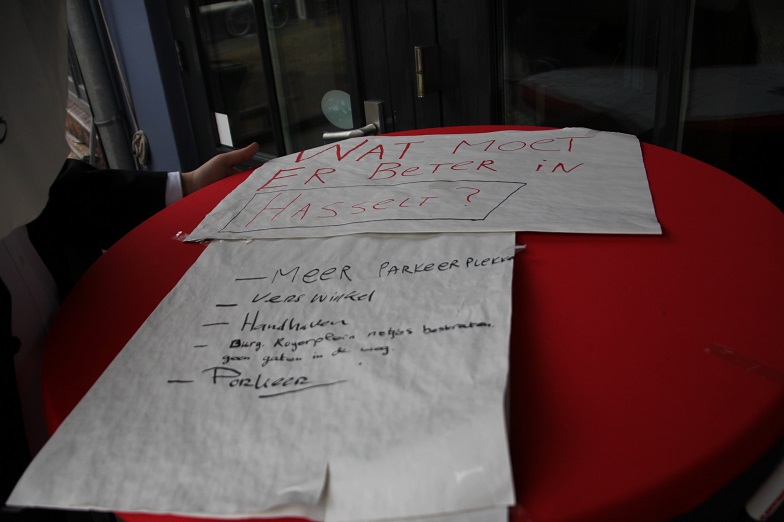 WAT MOET
ER BETER iN
HASSELT ?
— MEER PARKEERPLEKK
— Vers winkel
— Handhaven
— Burg. Royerplein netjes bestraten
geen gaten in de weg.
— PARKEER